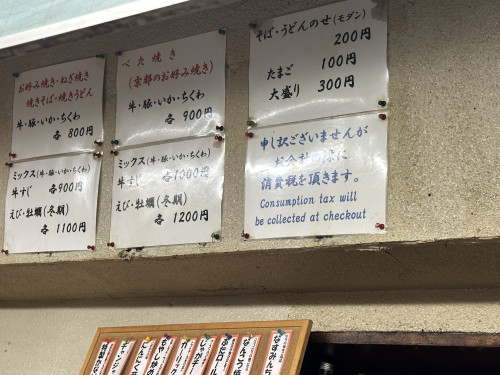 お好み焼き・ねぎ焼き
焼きそば・焼きうどん
牛・豚・いか・ちくわ
各 800円
ミックス(牛・豚・いか・ちくわ)
牛すじ 各900円
えび・牡蠣(冬期)
各 1100円
べた焼き
(京都のお好み焼き)
牛・豚・いか・ちくわ
各 900円
ミックス(牛・豚・いか・ちくわ)
牛すじ 各1000円
えび・牡蠣(冬期)
各 1200円
そば・うどんのせ(モダン)
200円
たまご 100円
大盛り 300円
申し訳ございませんが
お会計の際に
消費税を頂きます。
Consumption tax will
be collected at checkout